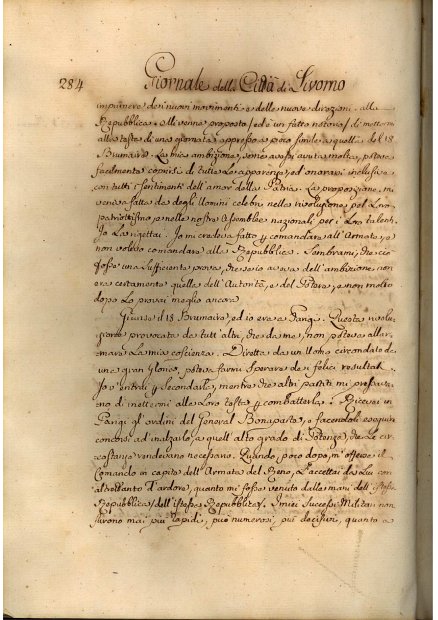 284 Giornale della Città di Livorno
imprimere dei nuovi movimenti e delle nuove direzioni alla
Repubblica. Mi venne proposto / ed è un fatto notorio / di mettermi
alla testa di una giornata appresso a poco simile a quella del 18
Brumaire. La mia ambizione, se ne avessi avuta molta, poteva
facilmente coprirsi di tutte le apparenze, ed onorarsi inclusive
con tutti i sentimenti dell'amor della Patria. La proposizione mi
veniva fatta da degli Uomini celebri nella rivoluzione pel Loro
patriottismo, e nelle nostre Assemblee nazionali per i Loro talenti.
Io La rigettai. Io mi credeva fatto p comandare all'Armate, e
non volevo comandare alla Repubblica. Sembrami, che ciò
fosse una sufficiente prova, che se io aveva dell'ambizione non
era certamente quella dell'Autorità, e del Potere, e non molto
dopo Lo provai meglio ancora.
Giunse il 18 Brumaire, ed io era a Parigi. Questa rivolu-
zione provocata da tutt'altri, che da me, non poteva allar-
mare La mia coscienza. Diretta da un Uomo circondato da
una gran Gloria, poteva farmi sperare dei felici resultati.
Io v'entrai p secondarla, mentre che altri partiti mi pressava-
no di mettermi alla Loro testa p combatterla. Ricevei in
Parigi gl'ordini del General Bonaparte, e facendoli eseguire
concorsi ad inalzarlo a quell'alto grado di Potenza, che Le cir-
costanze rendevano necessario. Quando, poco dopo, m'offerse il
Comando in capite dell'Armata del Reno, L'accettai da Lui con
altrettanto d'ardore, quanto mi fosse venuto dalle mani dell'istessa
Repubblica / dell'istessa Repubblica /. I miei successi Militari non
furono mai più rapidi, più numerosi, più decisivi, quanto a